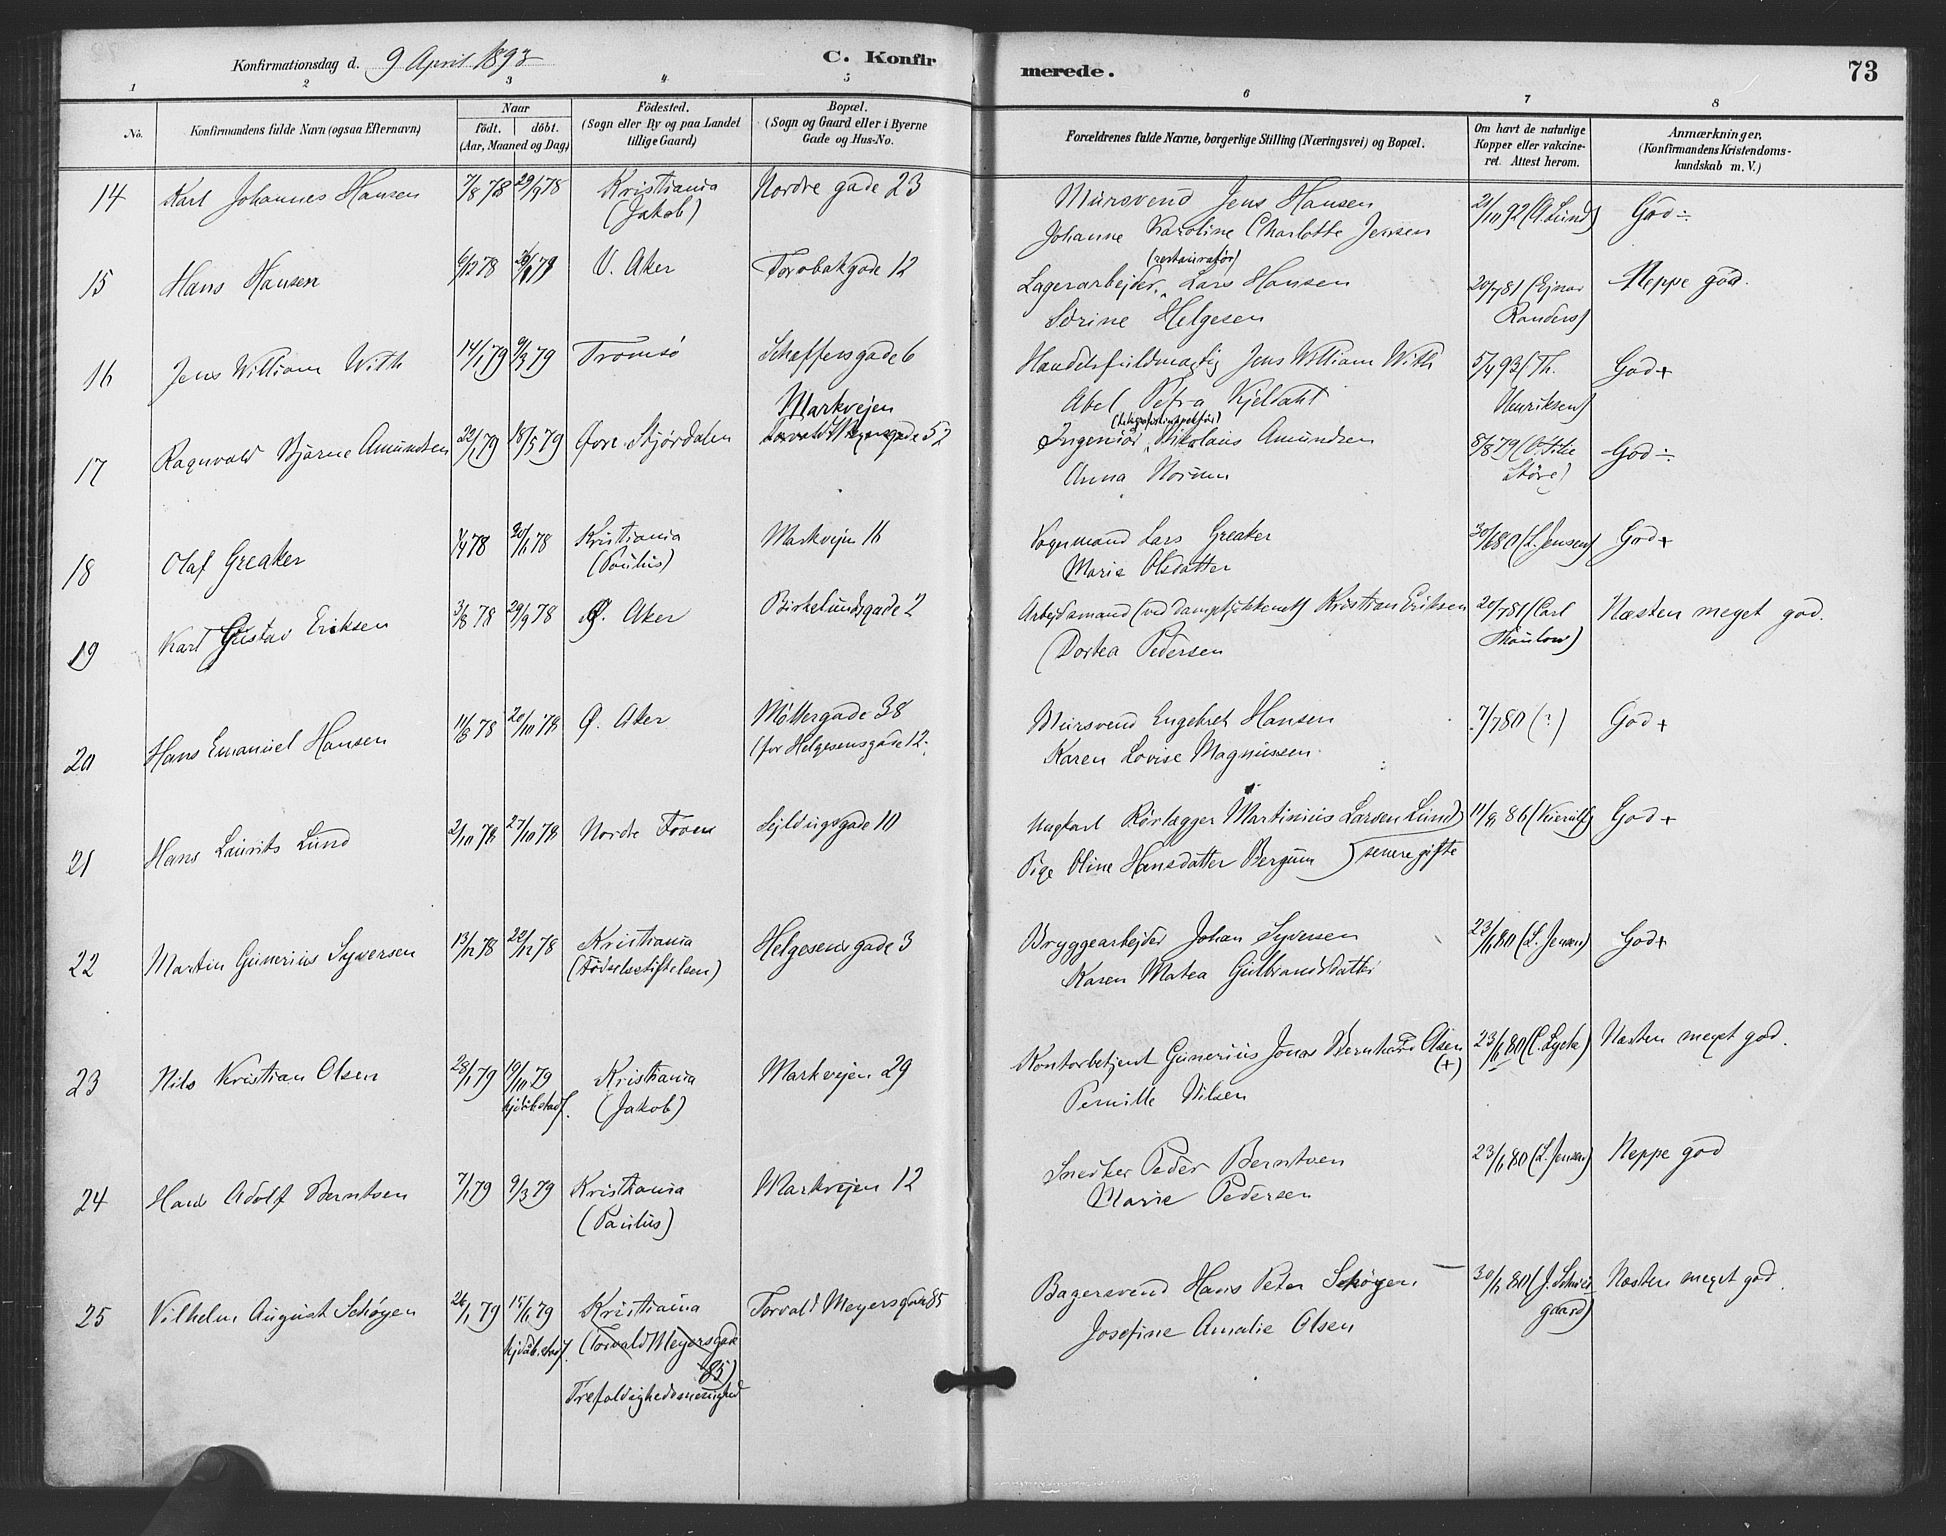 Konfirmationsdag d. 9 April 1893
C. Konfirmerede.
73
1 2 3 4 5 6 7 8
No.
Konfirmandens fulde Navn (ogsaa Efternavn)
Naar
födt. döbt.
(Aar, Maaned og Dag)
Födested.
(Sogn eller By og paa Landet
tillige Gaard)
Bopæl.
(Sogn og Gaard eller i Byerne
Gade og Hus-No.
Forældrenes fulde Navne, borgerlige Stilling (Næringsvei) og Bopæl.
Om havt de naturlige
Kopper eller vakcine-
ret. Attest herom.
Anmærkninger,
(Konfirmandens Kristendoms-
kundskab m. V.)
14 Karl Johannes Hansen 7/8 78 29/9 78 Kristiania (Jakob) Nordre gade 23 Mursvend Jens Hansen 21/10 92 (A. Lund) God ÷
Johanne Karoline Charlotte Jensen
15 Hans Hansen 6/12 78 V. Aker Torobakgade 12 Lagerarbejder (restauratör) Lars Hansen 20/7 81 (Ejnar Randers) Neppe god.
Serine Helgesen
16 Jens William With 14/1 79 9/3 79 Tromsö Scheffersgade 6 Handelsfuldmægtig Jens William With 5/4 93 (Th. Henriksen) God +
Abel Petra Kjeldahl
17 Ragnvald Bjarne Amundsen 22/1 79 18/5 79 Övre Stjørdalen Markvejen
Torvald Meyersgade 52 Ingeniör Nikolaus Amundsen 8/8 79 God ÷
Anna Norum
18 Olaf Greaker 1/4 78 Kristiania (Paulus) Markvejen 16 Vognmand Lars Greaker 30/6 80 (L. Jensen) God +
Marie Olsdatter
19 Karl Gustav Eriksen 3/8 78 29/9 78 Ø. Aker Birkelundsgade 2 Arbejdsmand (ved dampkjökkenet) Kristian Eriksen 20/7 81 (Carl Thaulow) Næsten meget god.
Dortea Pedersen
20 Hans Emanuel Hansen 11/8 78 20/10 78 Ø. Aker Möllergade 38 Mursvend Engebret Hansen 7/7 80 (?) God +
(för Helgesensgade 12.
Karen Lovise Magnussen.
21 Hans Laurits Lund 2/10 78 27/10 78 Nordre Fron Sejldugsgade 10 Ungkarl Rörlægger Martinius Larsen Lund 11/9 86 (Kierulf) God +
Pige Oline Hansdatter Bergum ) senere gifte
22 Martin Gunerius Syversen 13/12 78 22/12 78 Kristiania (Födselsstiftelsen) Helgesens gade 3 Bryggearbejder Johan Syversen 23/6 80 (L. Jensen) God +
Karen Matea Gulbrandsdatter
23 Nils Kristian Olsen 28/1 79 19/10 79 Kristiania (Jakob) Markvejen 29 Kontorbetjent Gunerius Jonas Bernhard Olsen (+) 23/6 80 (C. Lyche) Næsten meget god.
Pernille Nilsen
24 Hans Adolf Berntsen 7/1 79 9/3 79 Kristiania (Paulus) Markvejen 12 Snedker Peder Berntsen 23/6 80 (L. Jensen) Neppe god
Marie Pedersen
25 Vilhelm August Schøyen 26/1 79 15/6 79 Kristiania Torvald Meyersgade 85 Bagersvend Hans Peter Schøyen 30/6 80 (J. Schiødgaard) Næsten meget god.
(Torvald Meyersgade 85)
Trefoldighedsmenighed
Josefine Amalie Olsen